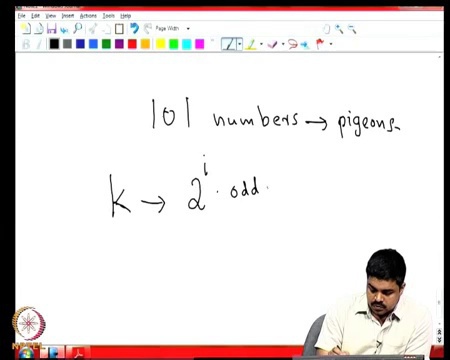 File Edit View Insert Actions Tools Help
Page Width
101 numbers → pigeons.
K → 2^i . odd.